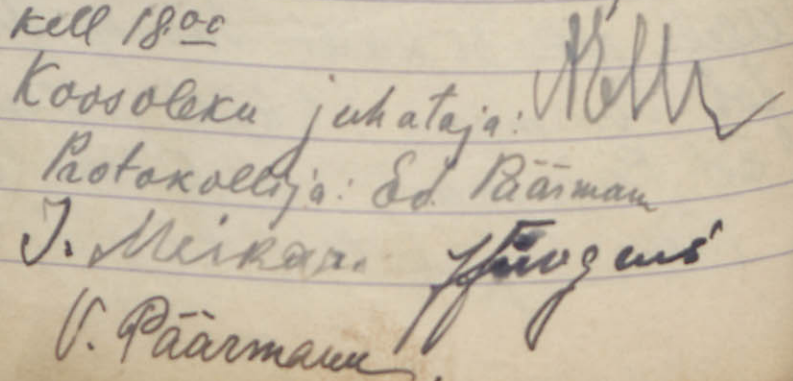 kell 18.00
Koosoleku juhataja:
Protokollija: Ed. Päärmann
J. Meikar.
V. Päärmann.